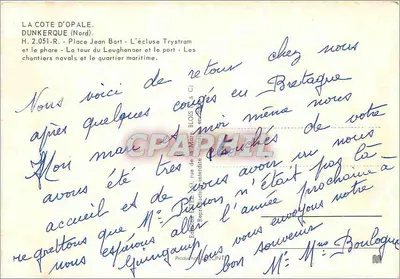 LA COTE D'OPALE.
DUNKERQUE (Nord).
H. 2.051-R. - Place Jean Bart - L'écluse Trystram
et le phare - La tour du Leughenaer et le port - Les
chantiers navals et le quartier maritime.
Nous voici de retour chez nous
après quelques congés en Bretagne
Mon mari et moi même nous
avons été très touchés de votre
accueil et de vous avoir vu nous
regrettons que Mr n'était pas là
nous espérons aller l'année prochaine à
Guingamp Nous vous envoyons notre
bon souvenir
Mr Mme Boulogne
CPARAMA.COM